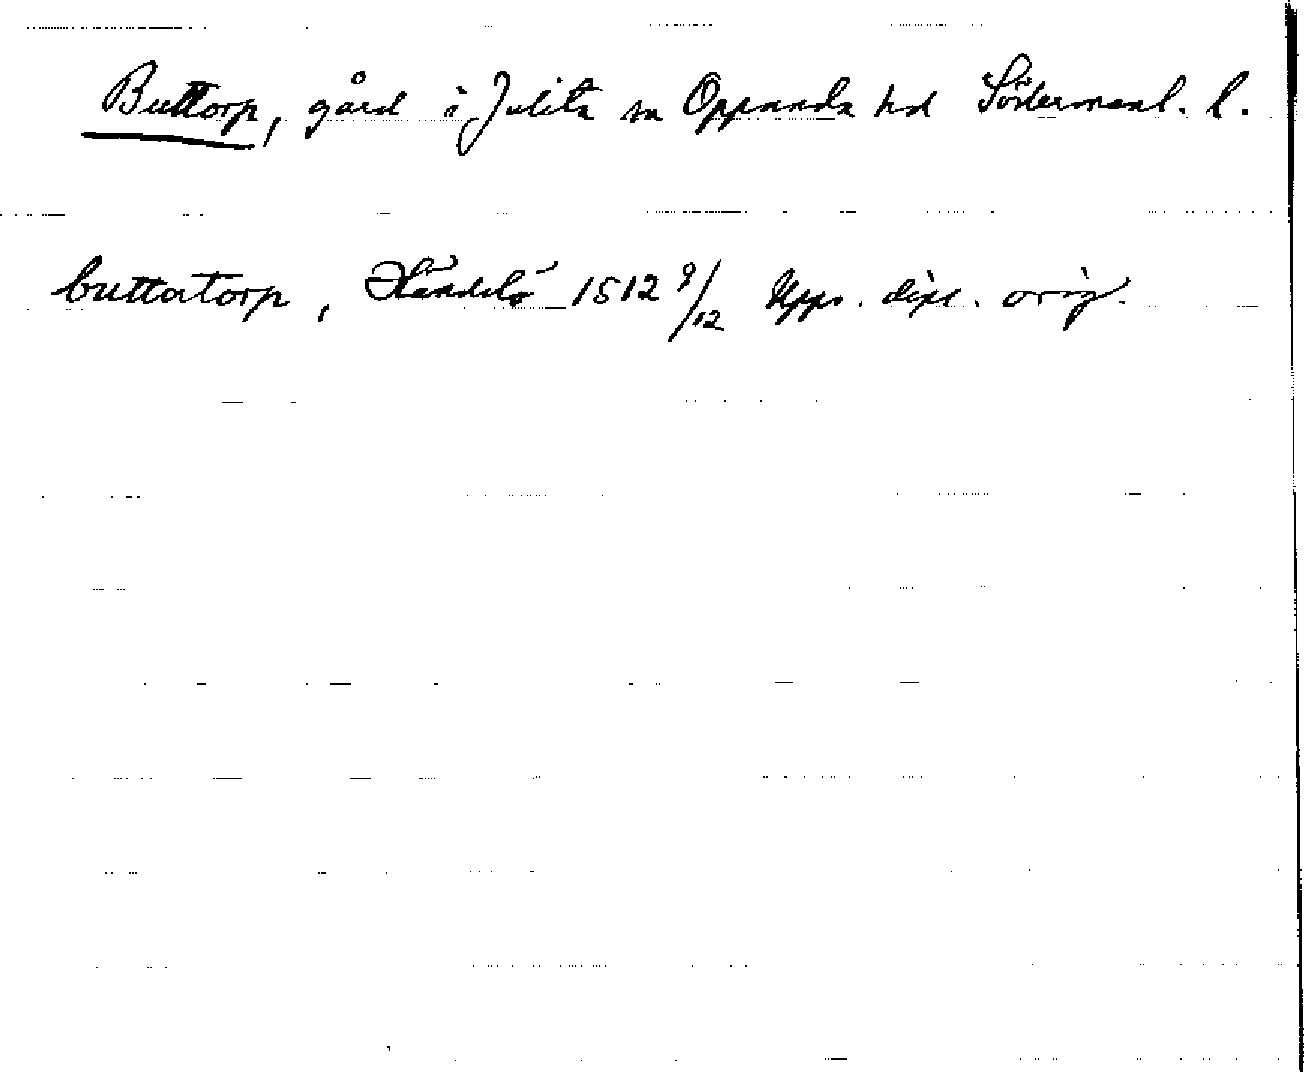 Buttorp, gård i Julita sn Oppunda hd Södermanl. l.
buttatorp, Händelö 1512 9/12 Upps. dipl. orig.